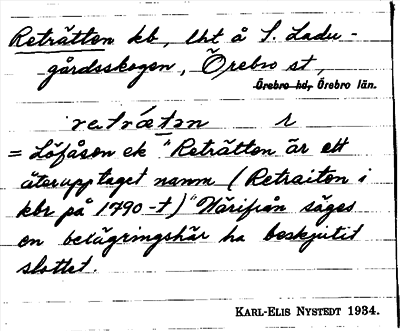 Reträtten kb, lht å S. Ladu-
gårdsskogen, Örebro st,
Örebro hd, Örebro län.
retrǽtən r
= Löfåsen ek "Reträtten är ett
återupptaget namn (Retraiten i
kbr på 1790-t)" Härifrån säges
en belägringshär ha beskjutit
slottet.
KARL-ELIS NYSTEDT 1934.